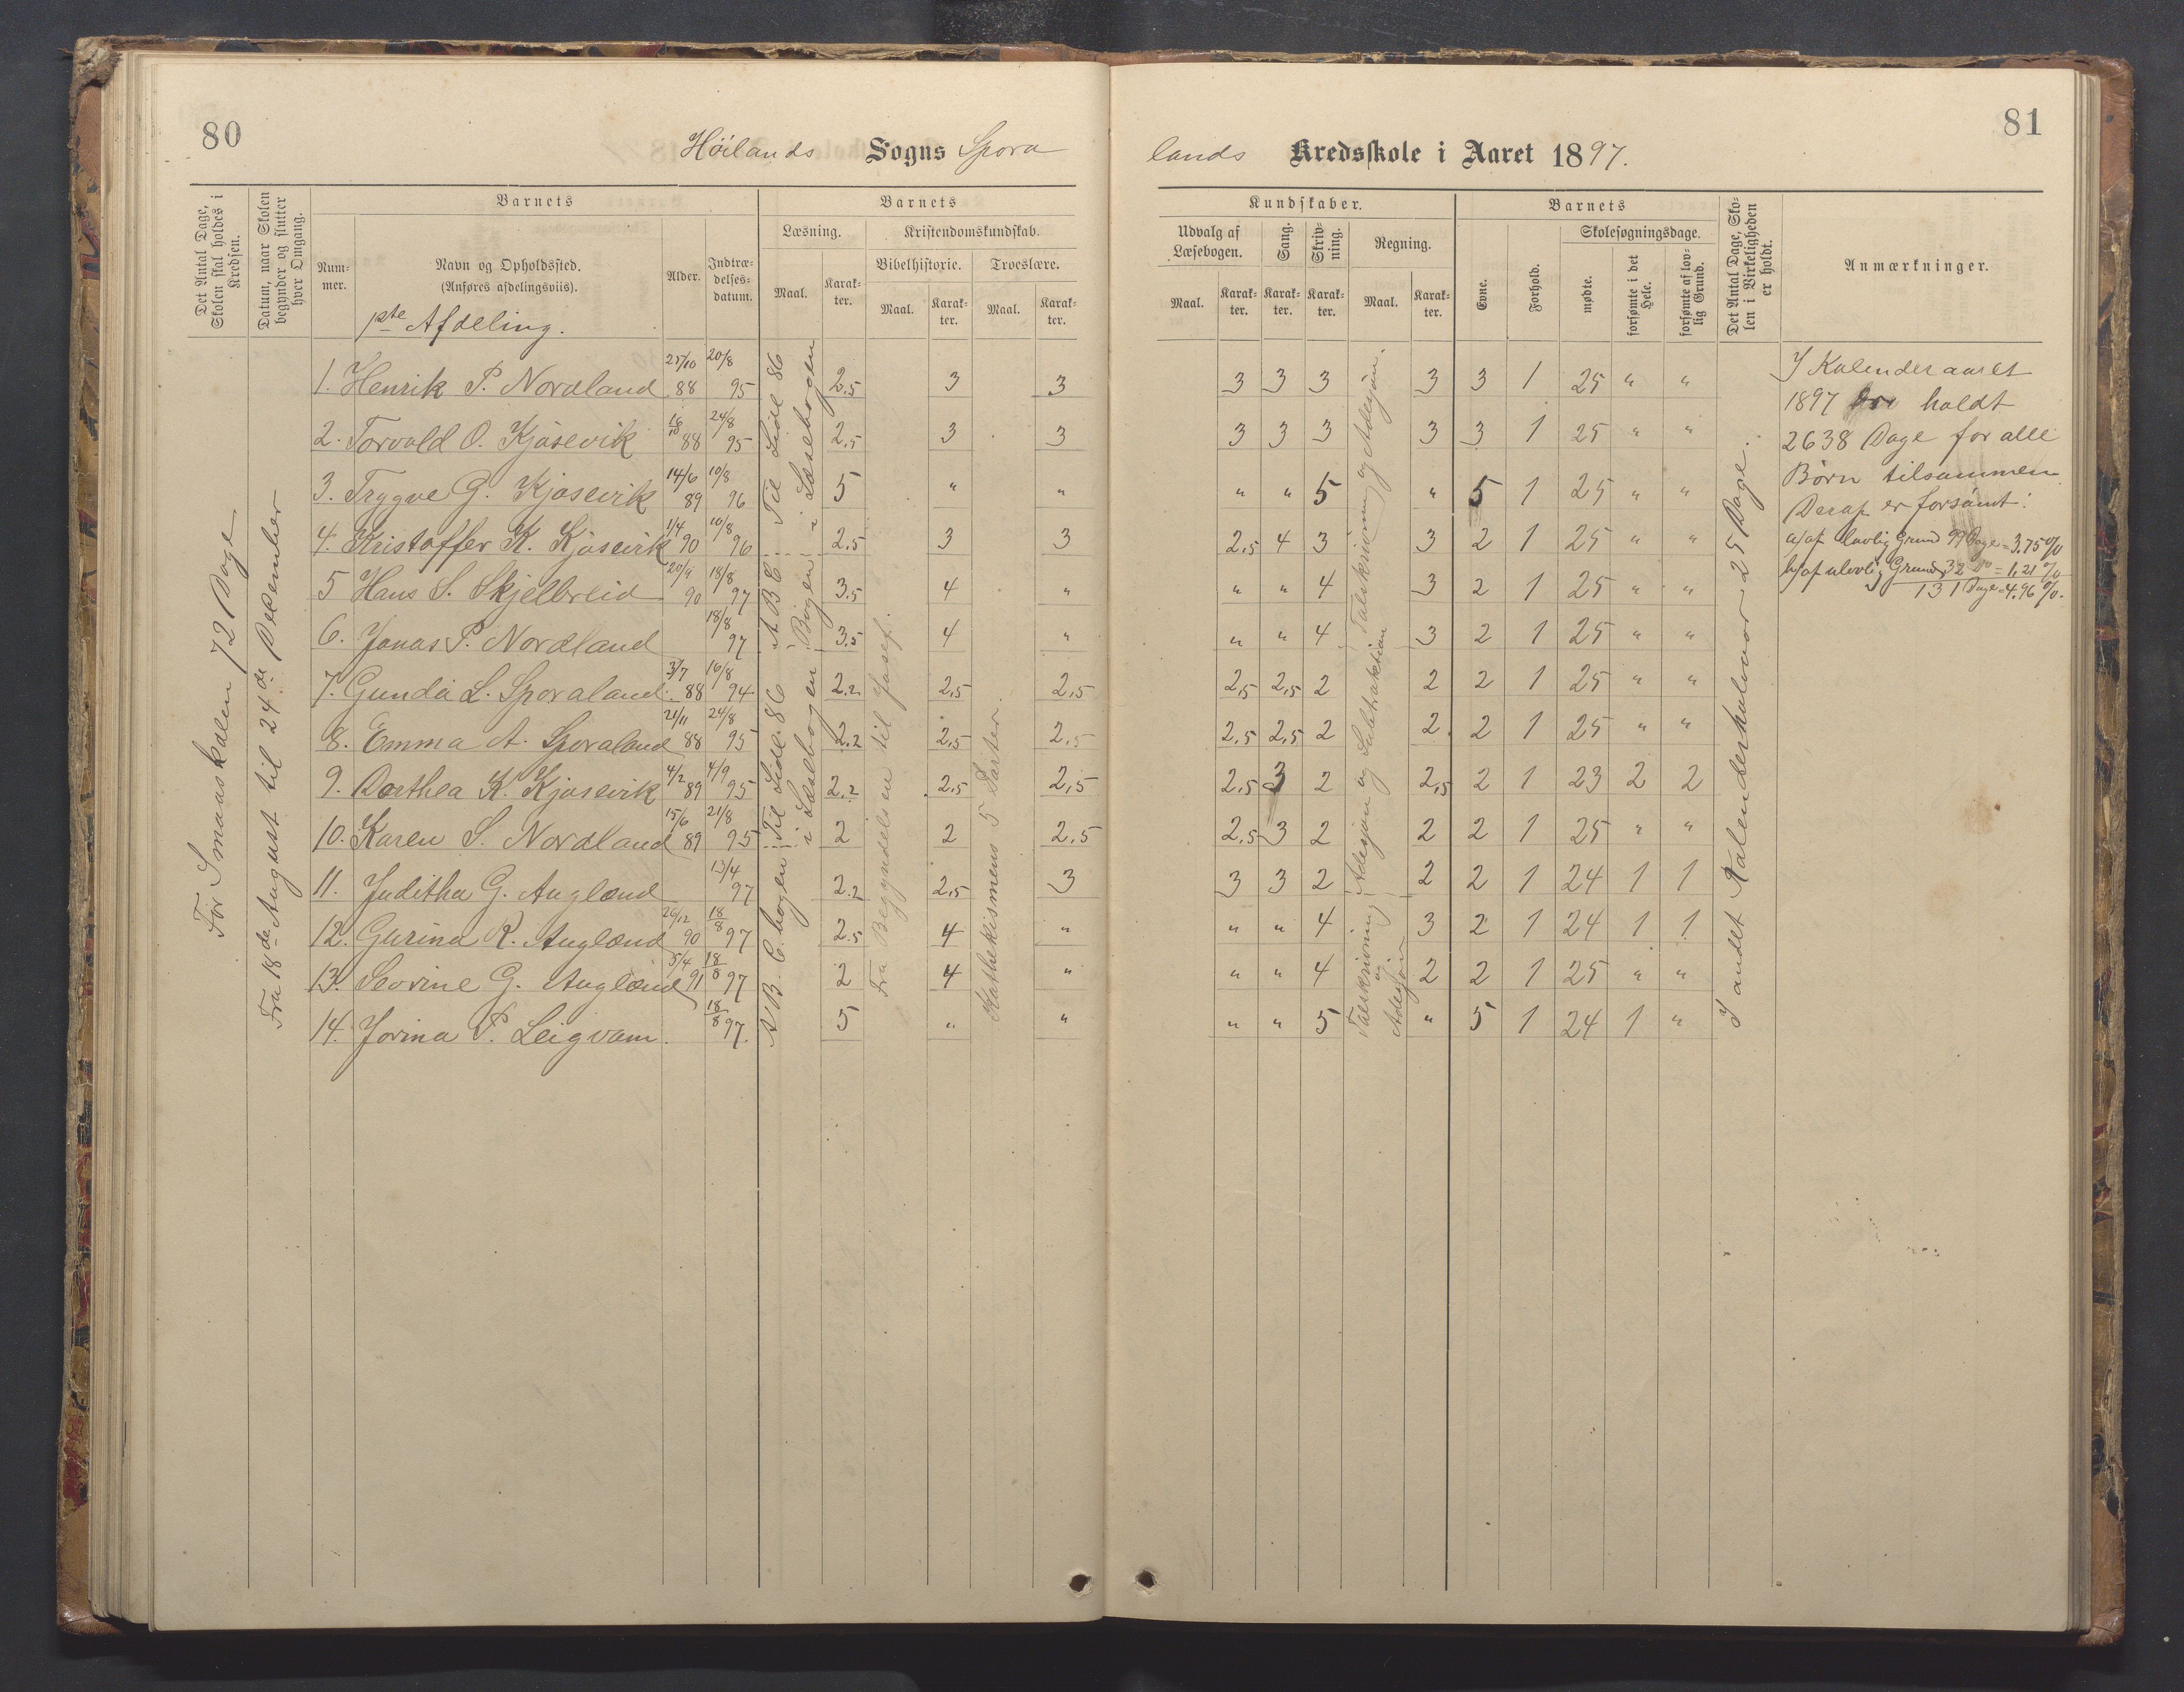 80
Höilands Sogns Spora
Det Antal Dage, Skolen skal holdes i Kredsen.
Datum, naar Skolen begynder og slutter hver Omgang.
Barnets
Num-mer.
Navn og Opholdssted.
(Anføres afdelingsviis).
1ste Afdeling.
Alder.
Indtræ-delses-datum.
Barnets
Læsning.
Maal.
Karak-ter.
Kristendomskundskab.
Bibelhistorie.
Maal.
Karak-ter.
Troeslære.
Maal.
Karak-ter.
For Smaaskolen 72 Dage
Fra 18de August til 24de December
1. Henrik P. Nordland 25/10 88 20/8 95 2.5 3 3
2. Torvald O. Kjosevik 18/10 88 24/8 95 2.5 3 3
3. Trygve G. Kjosevik 14/6 89 10/8 96 5 " "
4. Kristoffer K. Kjosevik 1/4 90 10/8 96 2.5 3 3
5 Hans S. Skjelbreid 20/9 90 18/8 97 3.5 4 "
6. Jonas P. Nordland 18/8 97 3.5 4 "
7. Gunda L. Sporaland 3/7 88 16/8 94 2.2 2.5 2.5
8. Emma A. Sporaland 21/11 88 24/8 95 2.2 2.5 2.5
9. Dorthea K. Kjosevik 4/2 89 4/9 95 2.2 2.5 2.5
10. Karen S. Nordland 15/6 89 21/8 95 2 2 2.5
11. Juditha G. Augland 13/4 97 2.2 2.5 3
12. Gurina R. Augland 26/12 90 18/8 97 2.5 4 "
13. Sevrine G. Augland 5/4 91 18/8 97 2 4 "
14. Jorina P. Leigvam. 18/8 97. 5 " "
A B C Til Side 86
Bogen i Læsebogen
A B C bogen Til Side 86
i Læsebogen
Fra Begyndelsen til Josef.
Kathekismens 5 Parter.
81
lands Kredsskole i Aaret 1897.
Kundskaber.
Udvalg af Læsebogen.
Maal.
Karak-ter.
Sang.
Karak-ter.
Skriv-ning.
Karak-ter.
Regning.
Maal.
Karak-ter.
Barnets
Evne.
Forhold.
Skolesøgningsdage.
mødte.
forsømte i det Hele.
forsømte af lov-lig Grund.
Det Antal Dage, Sko-len i Virkeligheden er holdt.
Anmærkninger.
3 3 3 3 3 1 25 " "
3 3 3 3 3 1 25 " "
" " 5 " 5 1 25 " "
2.5 4 3 3 2 1 25 " "
" " 4 3 2 1 25 " "
" " 4 3 2 1 25 " "
2.5 2.5 2 2 2 1 25 " "
2.5 2.5 2 2 2 1 25 " "
2.5 3 2 2.5 2 1 23 2 2
2.5 3 2 2 2 1 25 " "
3 3 2 2 2 1 24 1 1
" " 4 3 2 1 24 1 1
" " 4 2 2 1 25 " "
" " 5 " 5 1 24 1 "
Talskrivning og Adesjon.
Adesjon og Subtraktion
Talskrivning
og
Adesjon
I andet Kalenderhalvaar 25 Dage.
I Kalenderaaret
1897 holdt
2638 Dage for alle
Børn tilsammen
Deraf er forsømt:
a/ af lovlig Grund 99 Dage = 3.75%
b/ af ulovlig Grund 32 do = 1,21%
131 Dage = 4.96%.